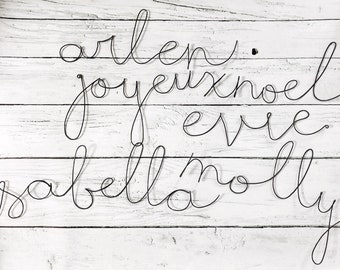 arlen
joyeux noel
evie
isabella molly